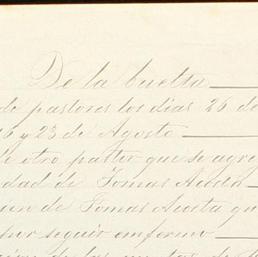 De la buelta
de pastores los dias 26 de
16 y 23 de Agosto
de otro pastor que se agre
dad de Tomas Acosta
de Tomas Acosta qu
por seguir enfermo